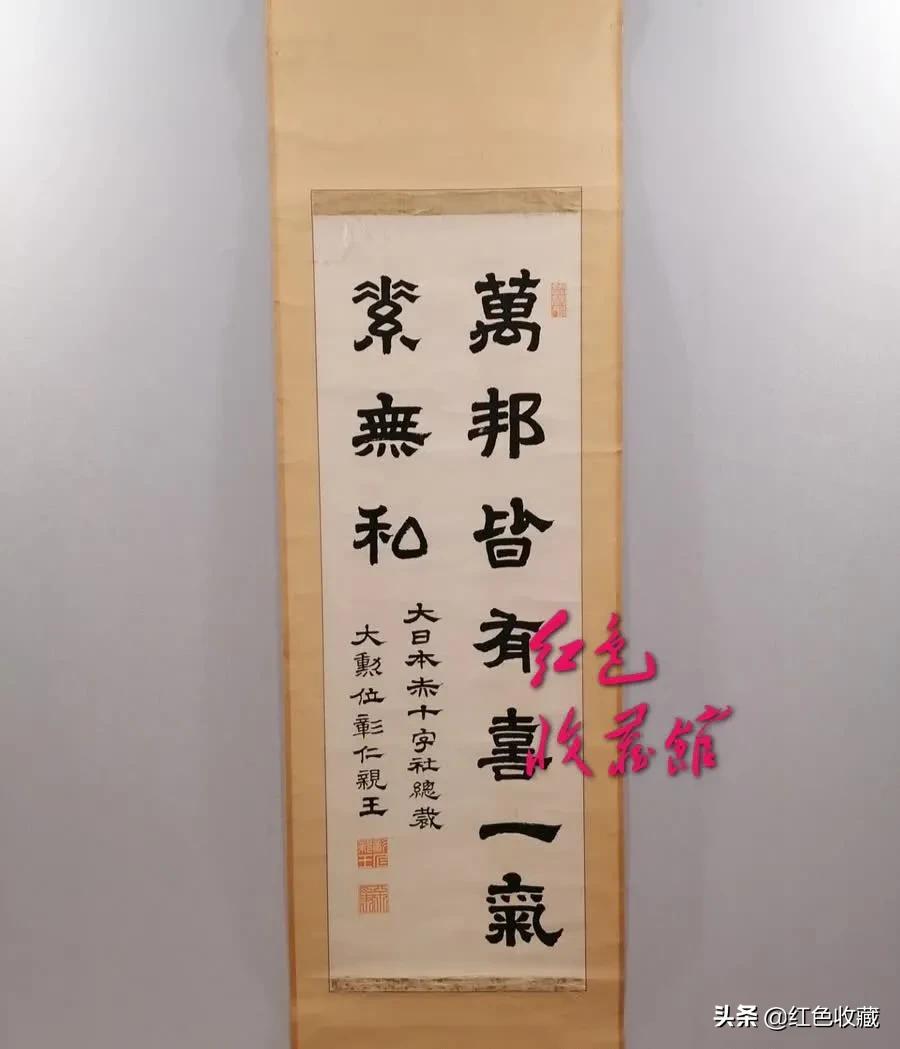 萬邦皆有喜一氣
素無私
大日本赤十字社總裁
大勲位彰仁親王
彰仁親王
红色
收藏馆
头条 @红色收藏